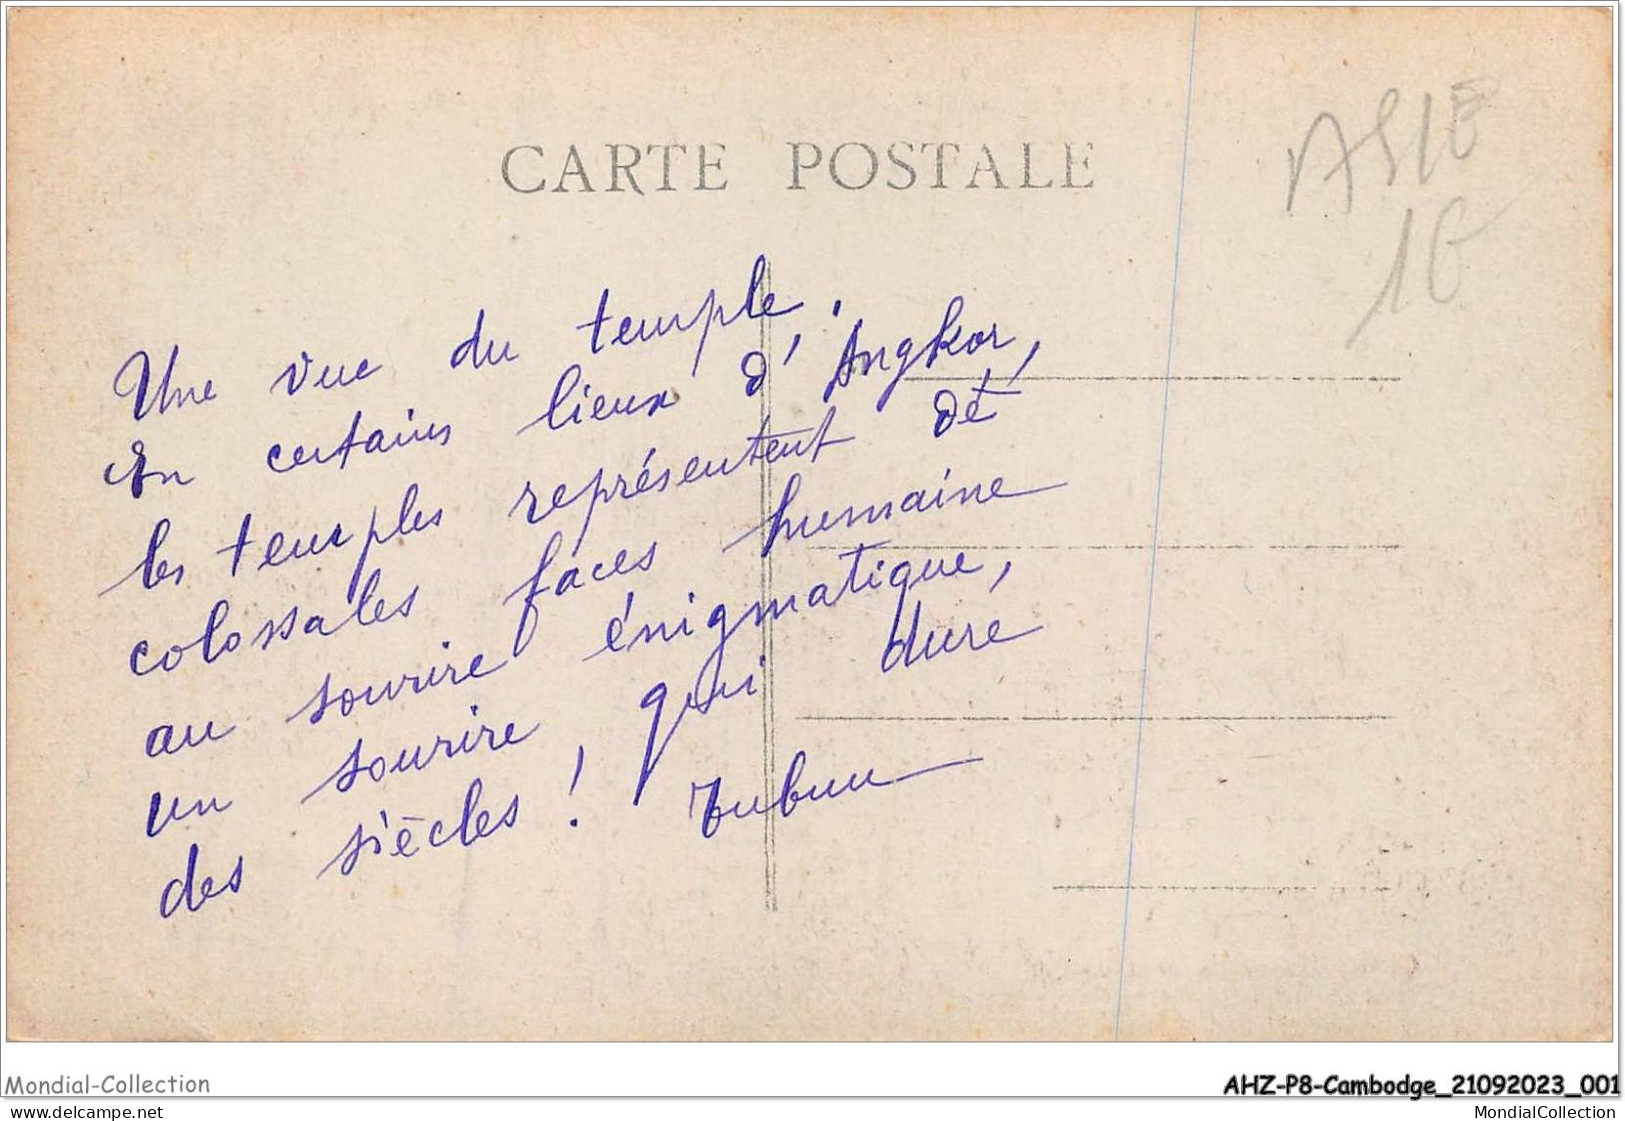 CARTE POSTALE
ASIE
1€
Une vue du temple.
En certains lieux d'Angkor,
les temples représentent dé
colossales faces humaine
au sourire énigmatique,
un sourire, qui dure
des siècles !
Mondial-Collection
AHZ-P8-Cambodge_21092023_001
www.delcampe.net
MondialCollection